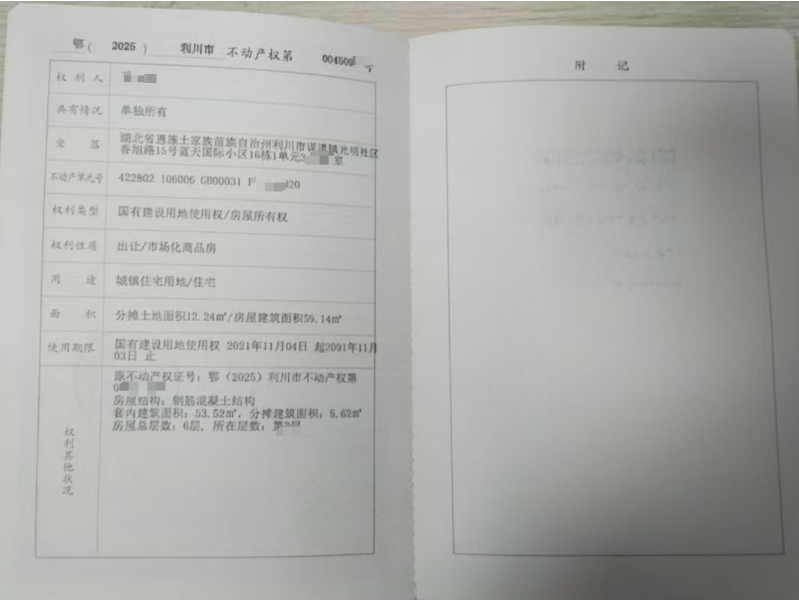 鄂( 2025 ) 利川市 不动产权第 004505 号
附 记
权 利 人
共有情况 单独所有
坐 落 湖北省恩施土家族苗族自治州利川市谋道镇光明社区
香旭路15号蓝天国际小区16栋1单元 室
不动产单元号 422802 106006 GB00031 F 020
权利类型 国有建设用地使用权/房屋所有权
权利性质 出让/市场化商品房
用 途 城镇住宅用地/住宅
面 积 分摊土地面积12.24㎡/房屋建筑面积59.14㎡
使用期限 国有建设用地使用权 2021年11月04日 起2091年11月
03日 止
权利其他状况
原不动产权证号: 鄂（2025）利川市不动产权第
房屋结构: 钢筋混凝土结构
套内建筑面积: 53.52㎡, 分摊建筑面积: 5.62㎡
房屋总层数: 6层, 所在层数: 第